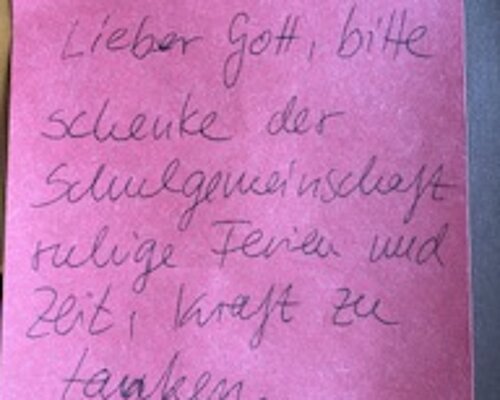 Lieber Gott, bitte
schenke der
Schulgemeinschaft
ruhige Ferien und
Zeit, Kraft zu
tanken.